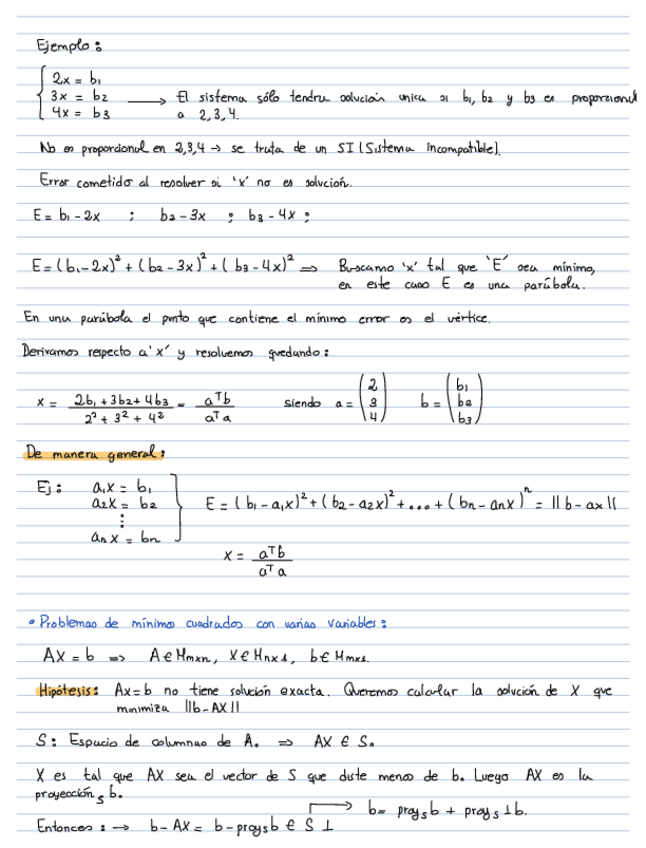 Ejemplo:
2x = b₁
3x = b₂ → El sistema sólo tendra solución unica si b₁, b₂ y b₃ es proporcional
4x = b₃ a 2,3,4.
No es proporcional en 2,3,4 → se trata de un SI (Sistema Incompatible).
Error cometido al resolver si 'x' no es solución.
E = b₁ - 2x ; b₂ - 3x ; b₃ - 4x ;
E = (b₁ - 2x)² + (b₂ - 3x)² + (b₃ - 4x)² ⇒ Buscamo 'x' tal que 'E' sea mínimo,
en este caso E es una parábola.
En una parábola el punto que contiene el mínimo error es el vértice.
Derivamos respecto a 'x' y resolvemos quedando:
x = (2b₁ + 3b₂ + 4b₃)/(2² + 3² + 4²) = (aᵀb)/(aᵀa) siendo a = (2 3 4) b = (b₁ b₂ b₃)
De manera general:
Ej: a₁x = b₁
a₂x = b₂ E = (b₁ - a₁x)² + (b₂ - a₂x)² + ... + (bn - anx)ⁿ = ||b - ax||
⋮
anx = bn
x = (aᵀb)/(aᵀa)
• Problemas de mínimo cuadrados con varias variables:
AX = b ⇒ A ∈ Mmxn, X ∈ Mnx1, b ∈ Mmx1.
Hipótesis: Ax = b no tiene solución exacta. Queremos calcular la solución de X que
minimiza ||b - AX||
S: Espacio de columnas de A. ⇒ AX ∈ S.
X es tal que AX sea el vector de S que diste menos de b. Luego AX es la
proyección s b.
→ b = proy s b + proy s ⊥ b.
Entonces: → b - AX = b - proy s b ∈ S ⊥